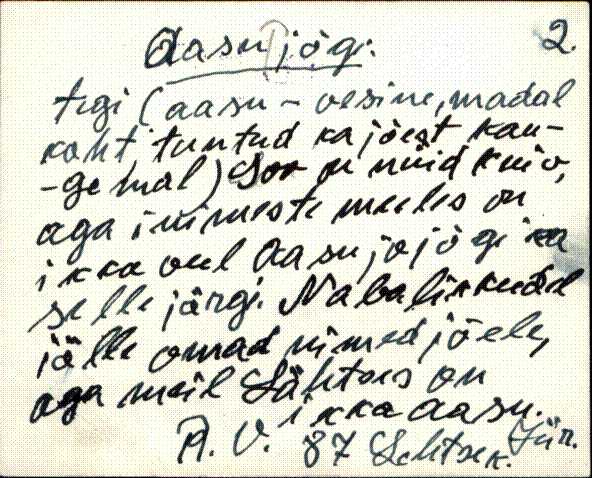 Aasu jõgi. 2.
tegi (aasu - vesine, madal
koht tuntud ka jõest kau-
-gemal) Soo on nüüd kuiv,
aga inimeste meeles on
ikka veel Aasu ja jõgi ka
selle järgi. Nabalistkudel
jälle omad nimed jõele,
aga meil Lähtses on
ikka aasu.
A. V. 87 Lehtse k. Jür.